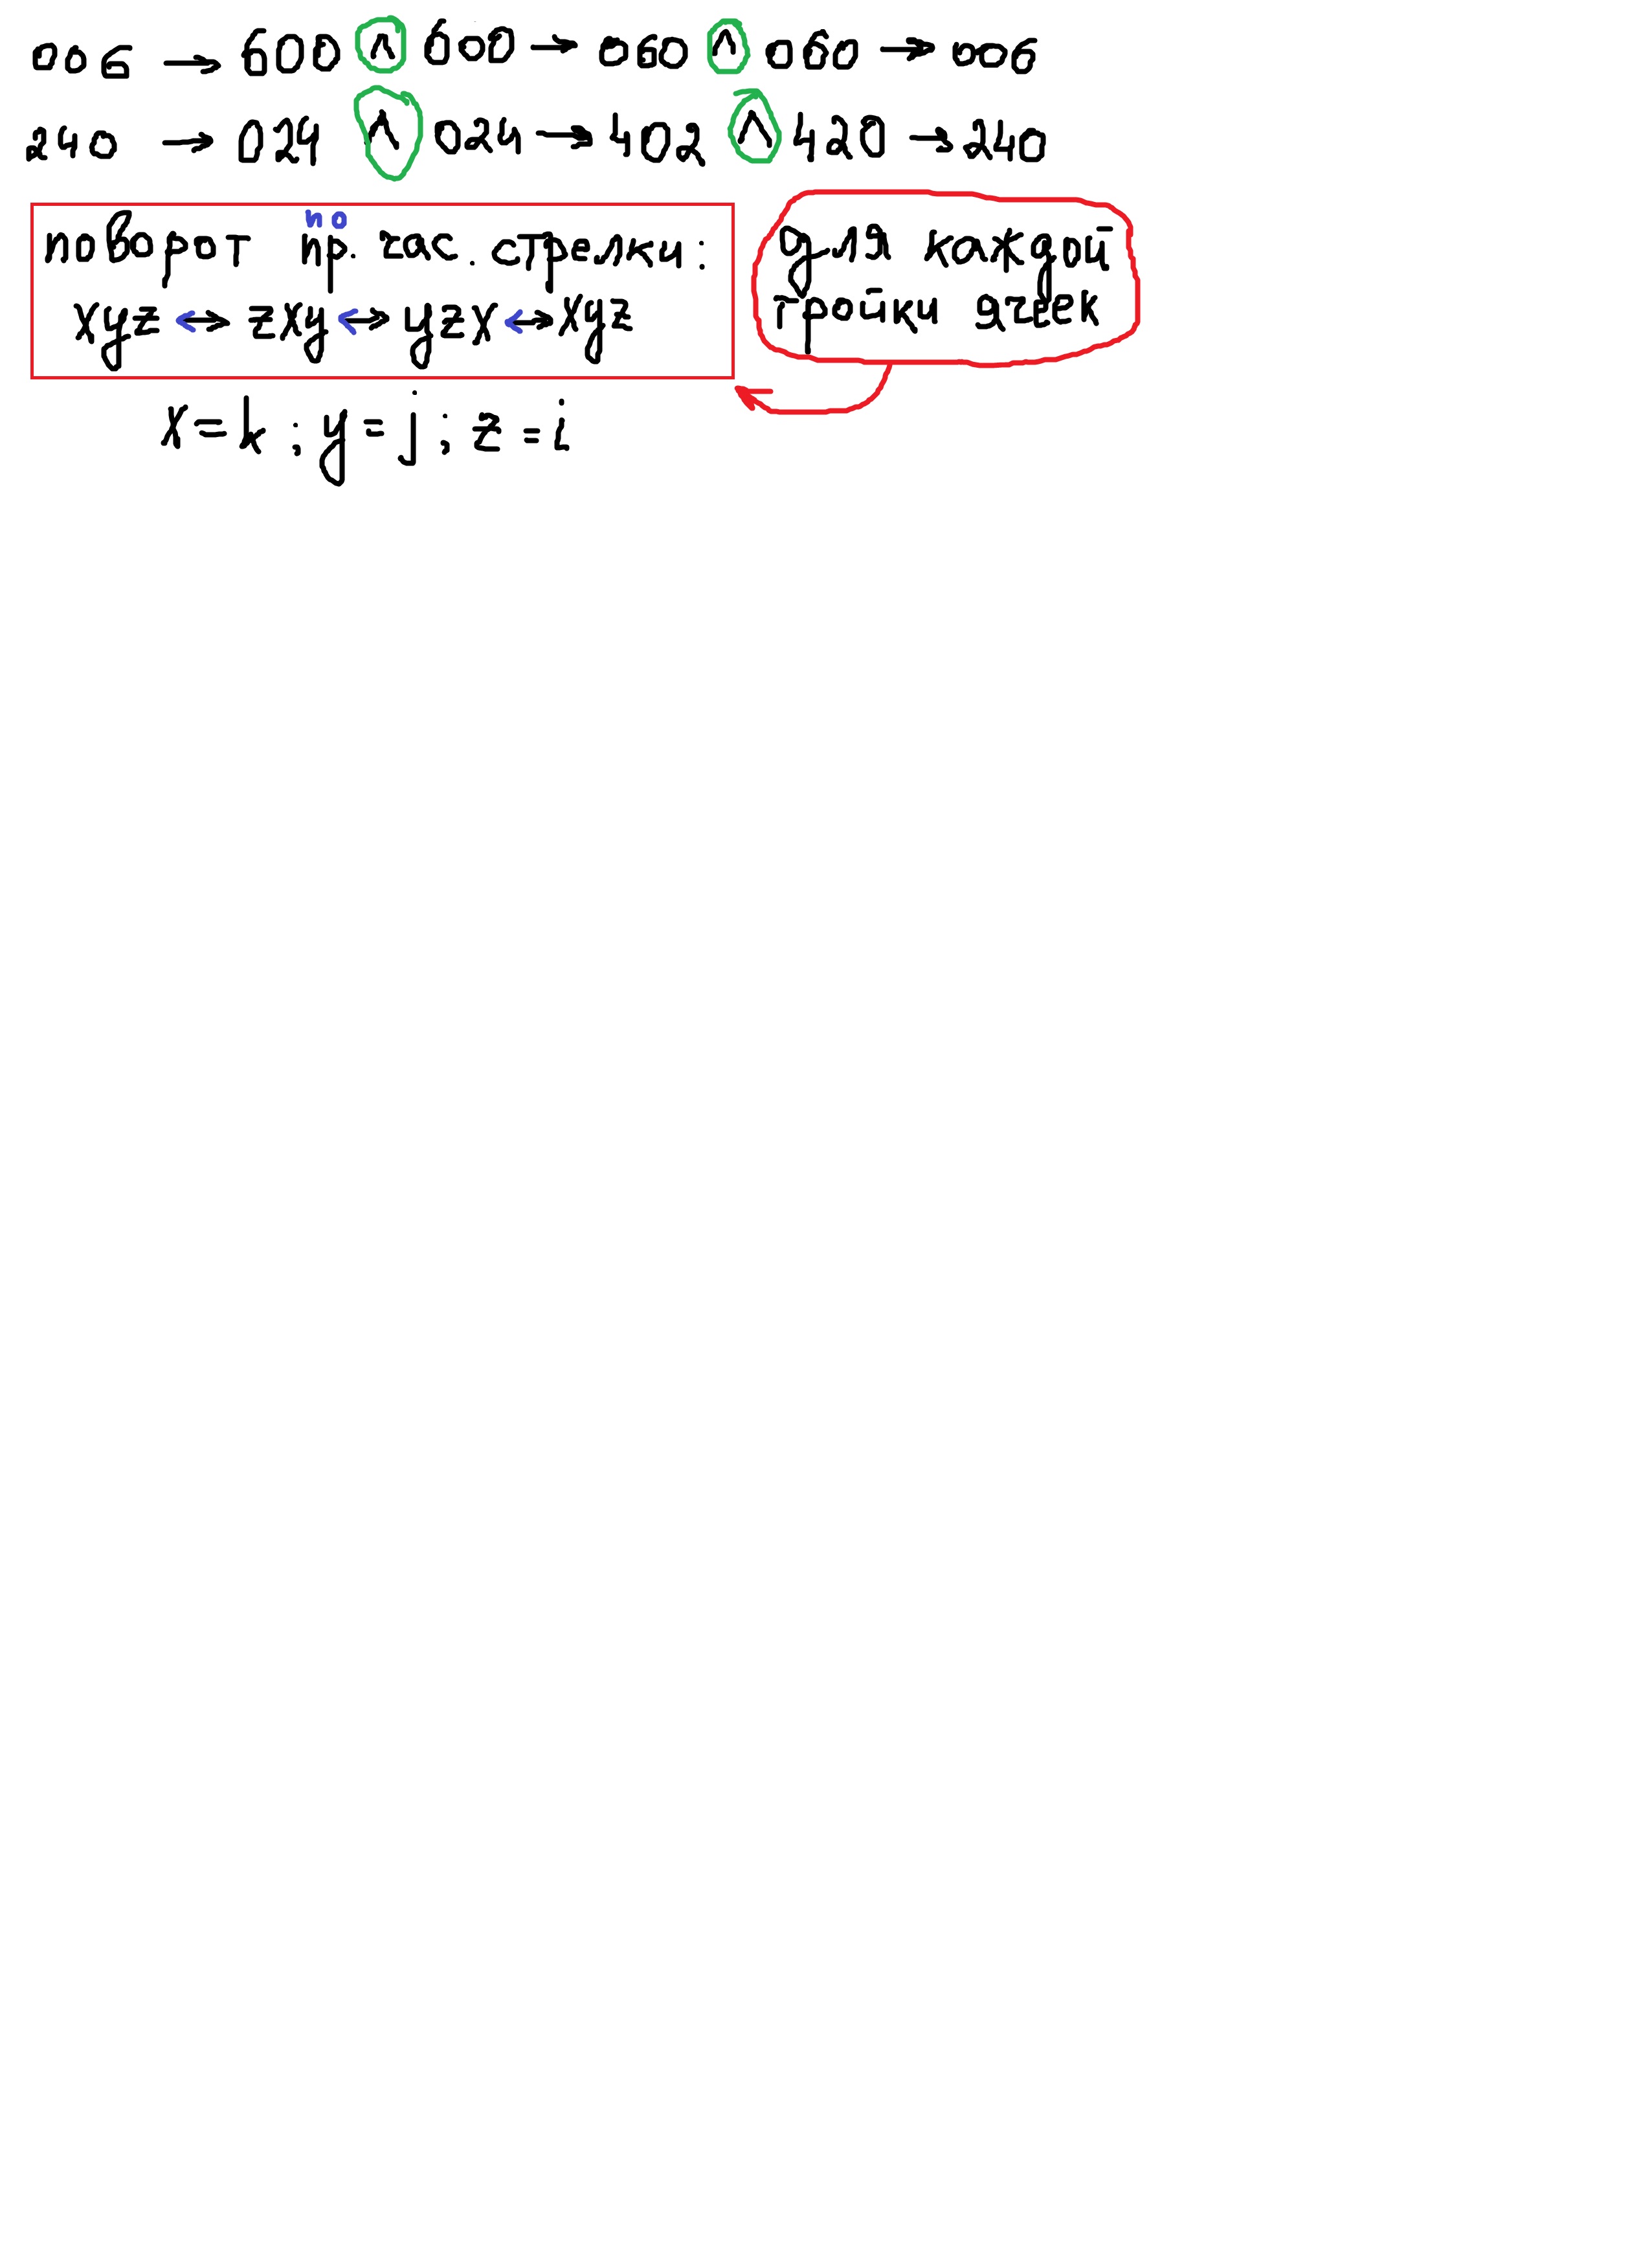 006 → 600 ∧ 600 → 060 ∧ 060 → 006
240 → 024 ∧ 024 → 402 ∧ 420 → 240
по
поворот пр. час. стрелки:
xyz ↔ zxy ↔ yzx ↔ xyz
для каждой
тройки ячеек
x=k; y=j; z=i